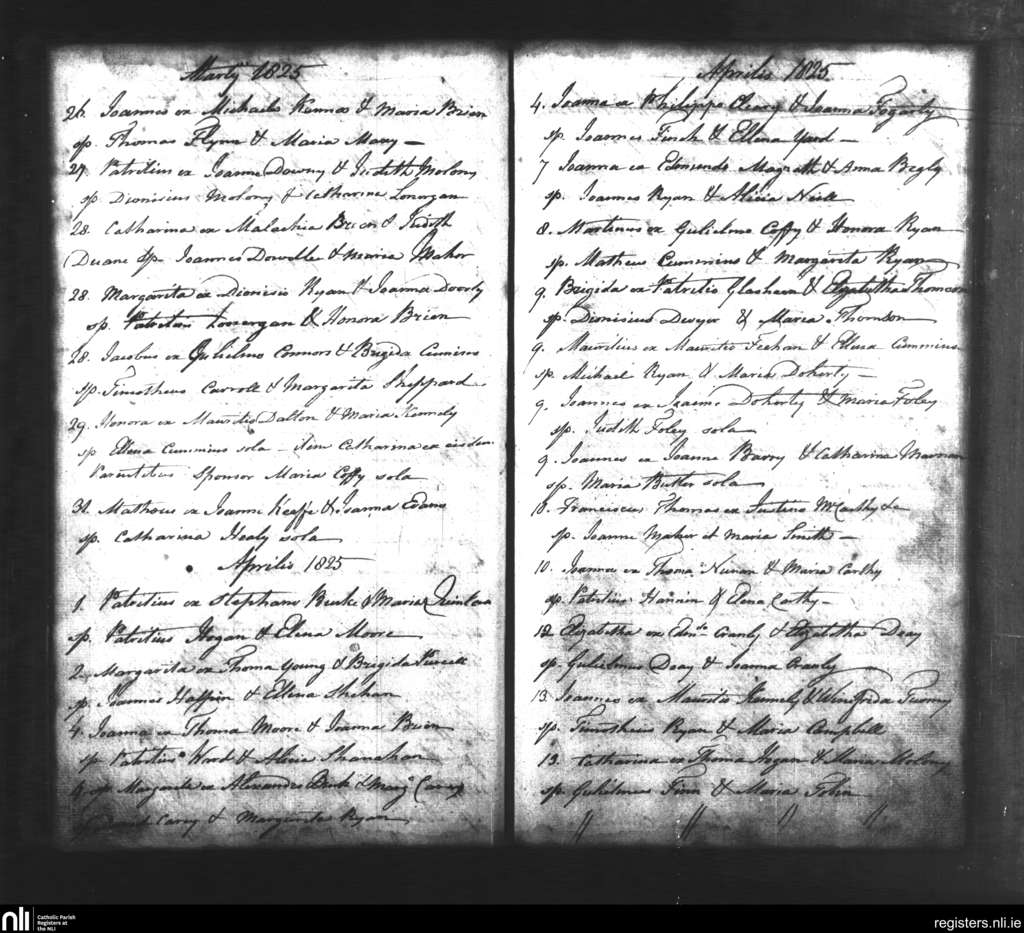 Martij 1825
26. Joannes ex Michaele Kennea & Maria Brien
sp. Thomas Flynn & Maria Many
27. Patritius ex Joanne Downy & Judith Molony
sp. Dionisius Molony & Catharine Lonergan
28. Catharina ex Malachia Brien & Judith
Duane sp. Joannes Dowdle & Maria Mahor
28. Margarita ex Dionisio Ryan & Joanna Doorly
sp. Patritius Lonnergan & Honora Brien
28. Jacobus ex Gulielmo Connors & Brigida Cumins
sp. Timotheus Carroll & Margarita Sheppard
29. Honora ex Mauritio Dalton & Maria Kennely
sp Ellena Cummins sola - item Catharina ex eisdem
Parentibus Sponsor Maria Coffy sola
31. Matheus ex Joanne Keeffe & Joanna Edams
sp. Catharina Healy sola
Aprilis 1825
1. Patritius ex Stephano Burke & Maria Quinlan
sp. Patritius Hogan & Elena Moore
2. Margarita ex Thoma Young & Brigida Purcell
sp. Joannes Haffin & Ellena Shehan
4. Joanna ex Thoma Moore & Joanna Brien
sp Patritius Word & Alicia Shanahan
4. sp Margarita ex Alexandro Burke & Marg. Carey
David Carey & Margarita Ryan
Aprilis 1825
4. Joanna ex Philippo Cleary & Joanna Fogarty
sp. Joannes Finch & Ellena Yard
7 Joanna ex Edmundo Magrath & Anna Begly
sp. Joannes Ryan & Alicia Neill
8. Martinus ex Gulielmo Coffy & Honora Ryan
sp. Matheus Cummins & Margarita Ryan
9. Brigida ex Patritio Glasheen & Elizabetha Thomson
sp. Dionisius Dwyer & Maria Thornson
9. Mauritius ex Mauritio Feehan & Ellena Cummins
sp. Michael Ryan & Maria Doherty
9. Joannes ex Jacimo Doherty & Maria Foley
sp. Judith Foley sola
9. Joannes ex Joanne Barry & Catharina Marnan
sp. Maria Butler sola
10. Franciscus Thomas ex Justino McCarthy &c
sp. Joanne Maher et Maria Smith
10. Joanna ex Thoma Nunan & Maria Carthy
sp. Patritius Hannin & Elena Carthy
12 Elizabetha ex Edmdo Cranly & Elizabetha Deay
sp. Gulielmus Deay & Joanna Cranly
13. Joannes ex Mauritio Kennely & Winifrida Tuomy
sp. Timotheus Ryan & Maria Campbell
13. Catharina ex Thoma Hogan & Maria Molony
sp. Gulielmus Finn & Maria Tobin
nli
Catholic Parish
Registers at
the NLI
registers.nli.ie